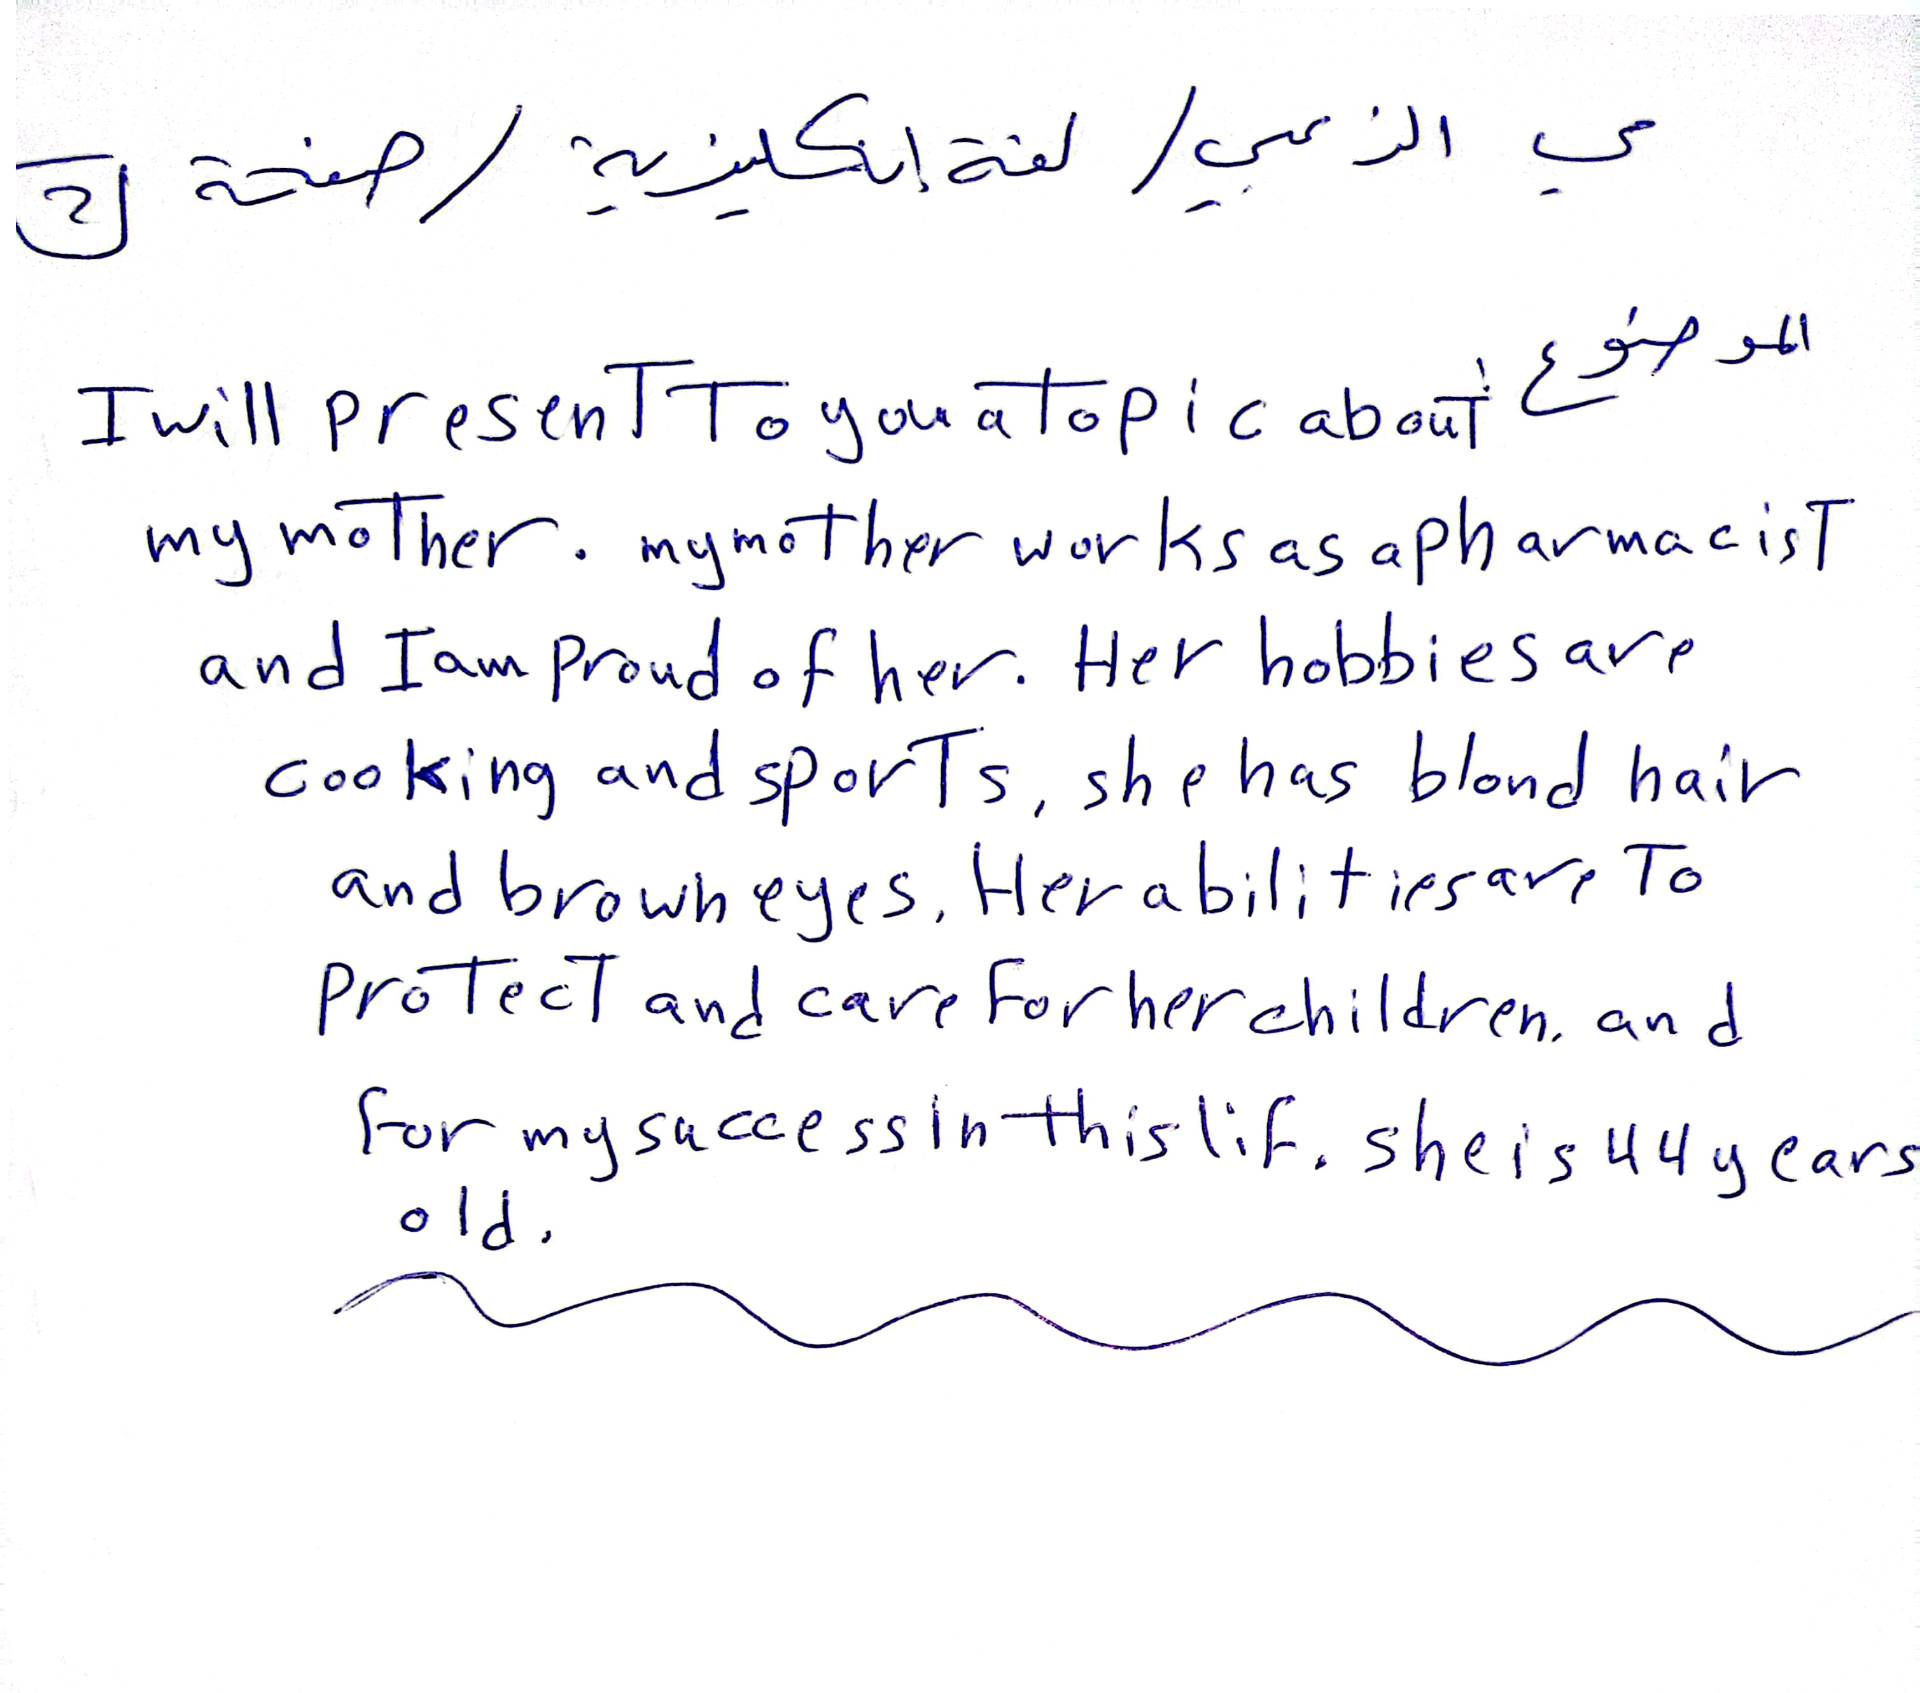 مي الزعبي / لغة إنكليزية / صفحة 2
الموضوع :
I will present To you a topic about
my moTher. my mother works as a pharmacisT
and I am proud of her. Her hobbies are
cooking and sporTs, she has blond hair
and brown eyes. Her abilities are To
proTecT and care For her children. and
for my success in this lif. she is 44 years
old.